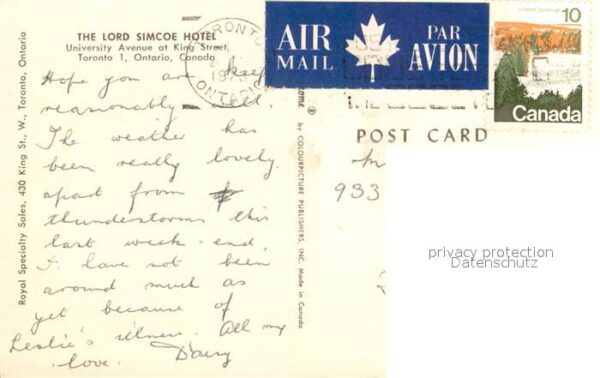 THE LORD SIMCOE HOTEL
University Avenue at King Street
Toronto 1, Ontario, Canada
Hope you are keep
reasonably well.
The weather has
been really lovely.
apart from
thunderstorms this
last week-end.
I have not been
around much as
yet because of
Leslie's illness. All my
love. Daisy
Royal Specialty Sales, 430 King St., W., Toronto, Ontario
by COLOURPICTURE PUBLISHERS, INC. Made in Canada
TORONTO
ONTARIO
AIR
MAIL
PAR
AVION
10
Canada
POST CARD
933
privacy protection
Datenschutz